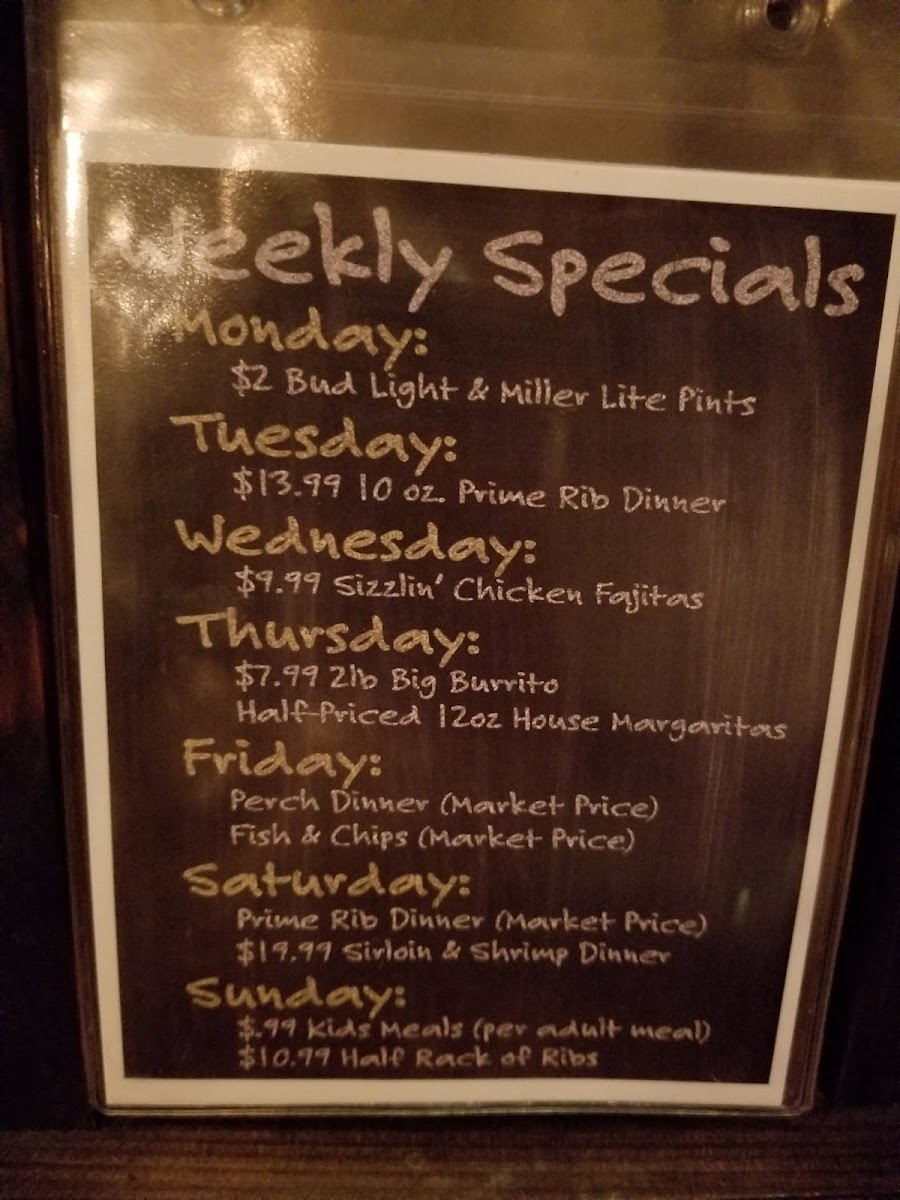 Weekly Specials
Monday:
$2 Bud Light & Miller Lite Pints
Tuesday:
$13.99 10 oz. Prime Rib Dinner
Wednesday:
$9.99 Sizzlin' Chicken Fajitas
Thursday:
$7.99 2lb Big Burrito
Half-Priced 12oz House Margaritas
Friday:
Perch Dinner (Market Price)
Fish & Chips (Market Price)
Saturday:
Prime Rib Dinner (Market Price)
$19.99 Sirloin & Shrimp Dinner
Sunday:
$.99 Kids Meals (per adult meal)
$10.99 Half Rack of Ribs